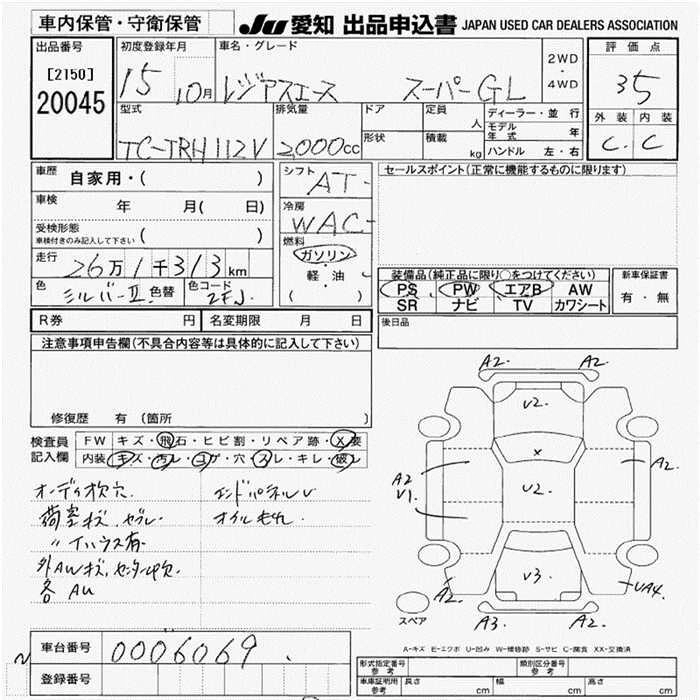 車内保管・守衛保管
JU 愛知 出品申込書 JAPAN USED CAR DEALERS ASSOCIATION
出品番号
[2150]
20045
初度登録年月
15 10月
車名・グレード
レジアスエース スーパーGL
2WD
・
4WD
評価点
35
外装 内装
C. C
型式
TC-TRH112V
排気量
2000cc
ドア
形状
定員 人
積載 kg
ディーラー・並行
モデル年式 年
ハンドル 左・右
車歴 自家用・( )
車検 年 月( 日)
受検形態
車検付きのみ記入して下さい ( )
走行 26万1千313km
色 シルバーII 色替
色コード 2EJ
シフト AT-
冷房 WAC-
燃料
ガソリン
・
軽・油
・
( )
セールスポイント(正常に機能するものに限ります)
装備品(純正品に限り○をつけてください)
PS PW エアB AW
SR ナビ TV カワシート
新車保証書
有・無
後日品
R券 円
名変期限 月 日
注意事項申告欄(不具合内容等は具体的に記入して下さい)
修復歴 有 (箇所 )
検査員記入欄
FW キズ・飛石・ヒビ割・リペア跡・X要
内装 キズ・汚レ・コゲ・穴・スレ・キレ・破レ
オーディオ欠穴
荷室キズ、ヤブレ
〃 イハウス有
外AWキズ、センターC欠
各 AU
エンドパネルU
オイルもれ
A2. A2.
U2.
X
A2
U1.
U2.
A2.
U3.
A2 UA4.
A3. A2.
スペア
A-キズ E-エクボ U-凹み W-補修跡 S-サビ C-腐食 XX-交換済
車台番号 0006069
登録番号
形式指定番号
参考
類別区分番号
参考
車庫証明用
参考
長さ cm
幅 cm
高さ cm